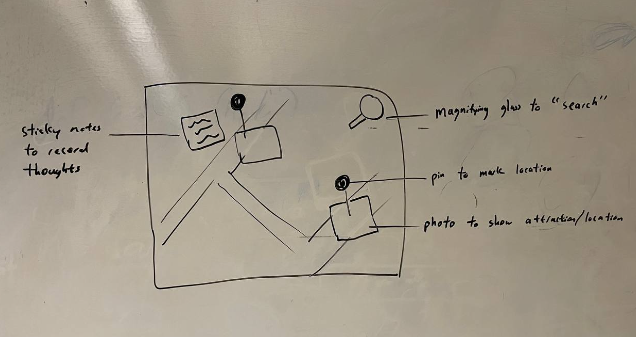 sticky notes
to record
thoughts
magnifying glass to "search"
pin to mark location
photo to show attraction/location